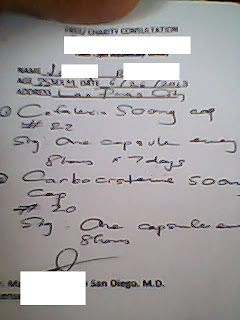 FREE/ CHARITY CONSULTATION
NAME
AGE DATE 2013
ADDRESS Las Pinas City
① Cefalexin 500mg cap
# 22
Sig. One capsule every
8 hours x 7 days
② Carbocisteine 500m
Cap
# 20
Sig. One capsule e
8 hours
San Diego, M.D.